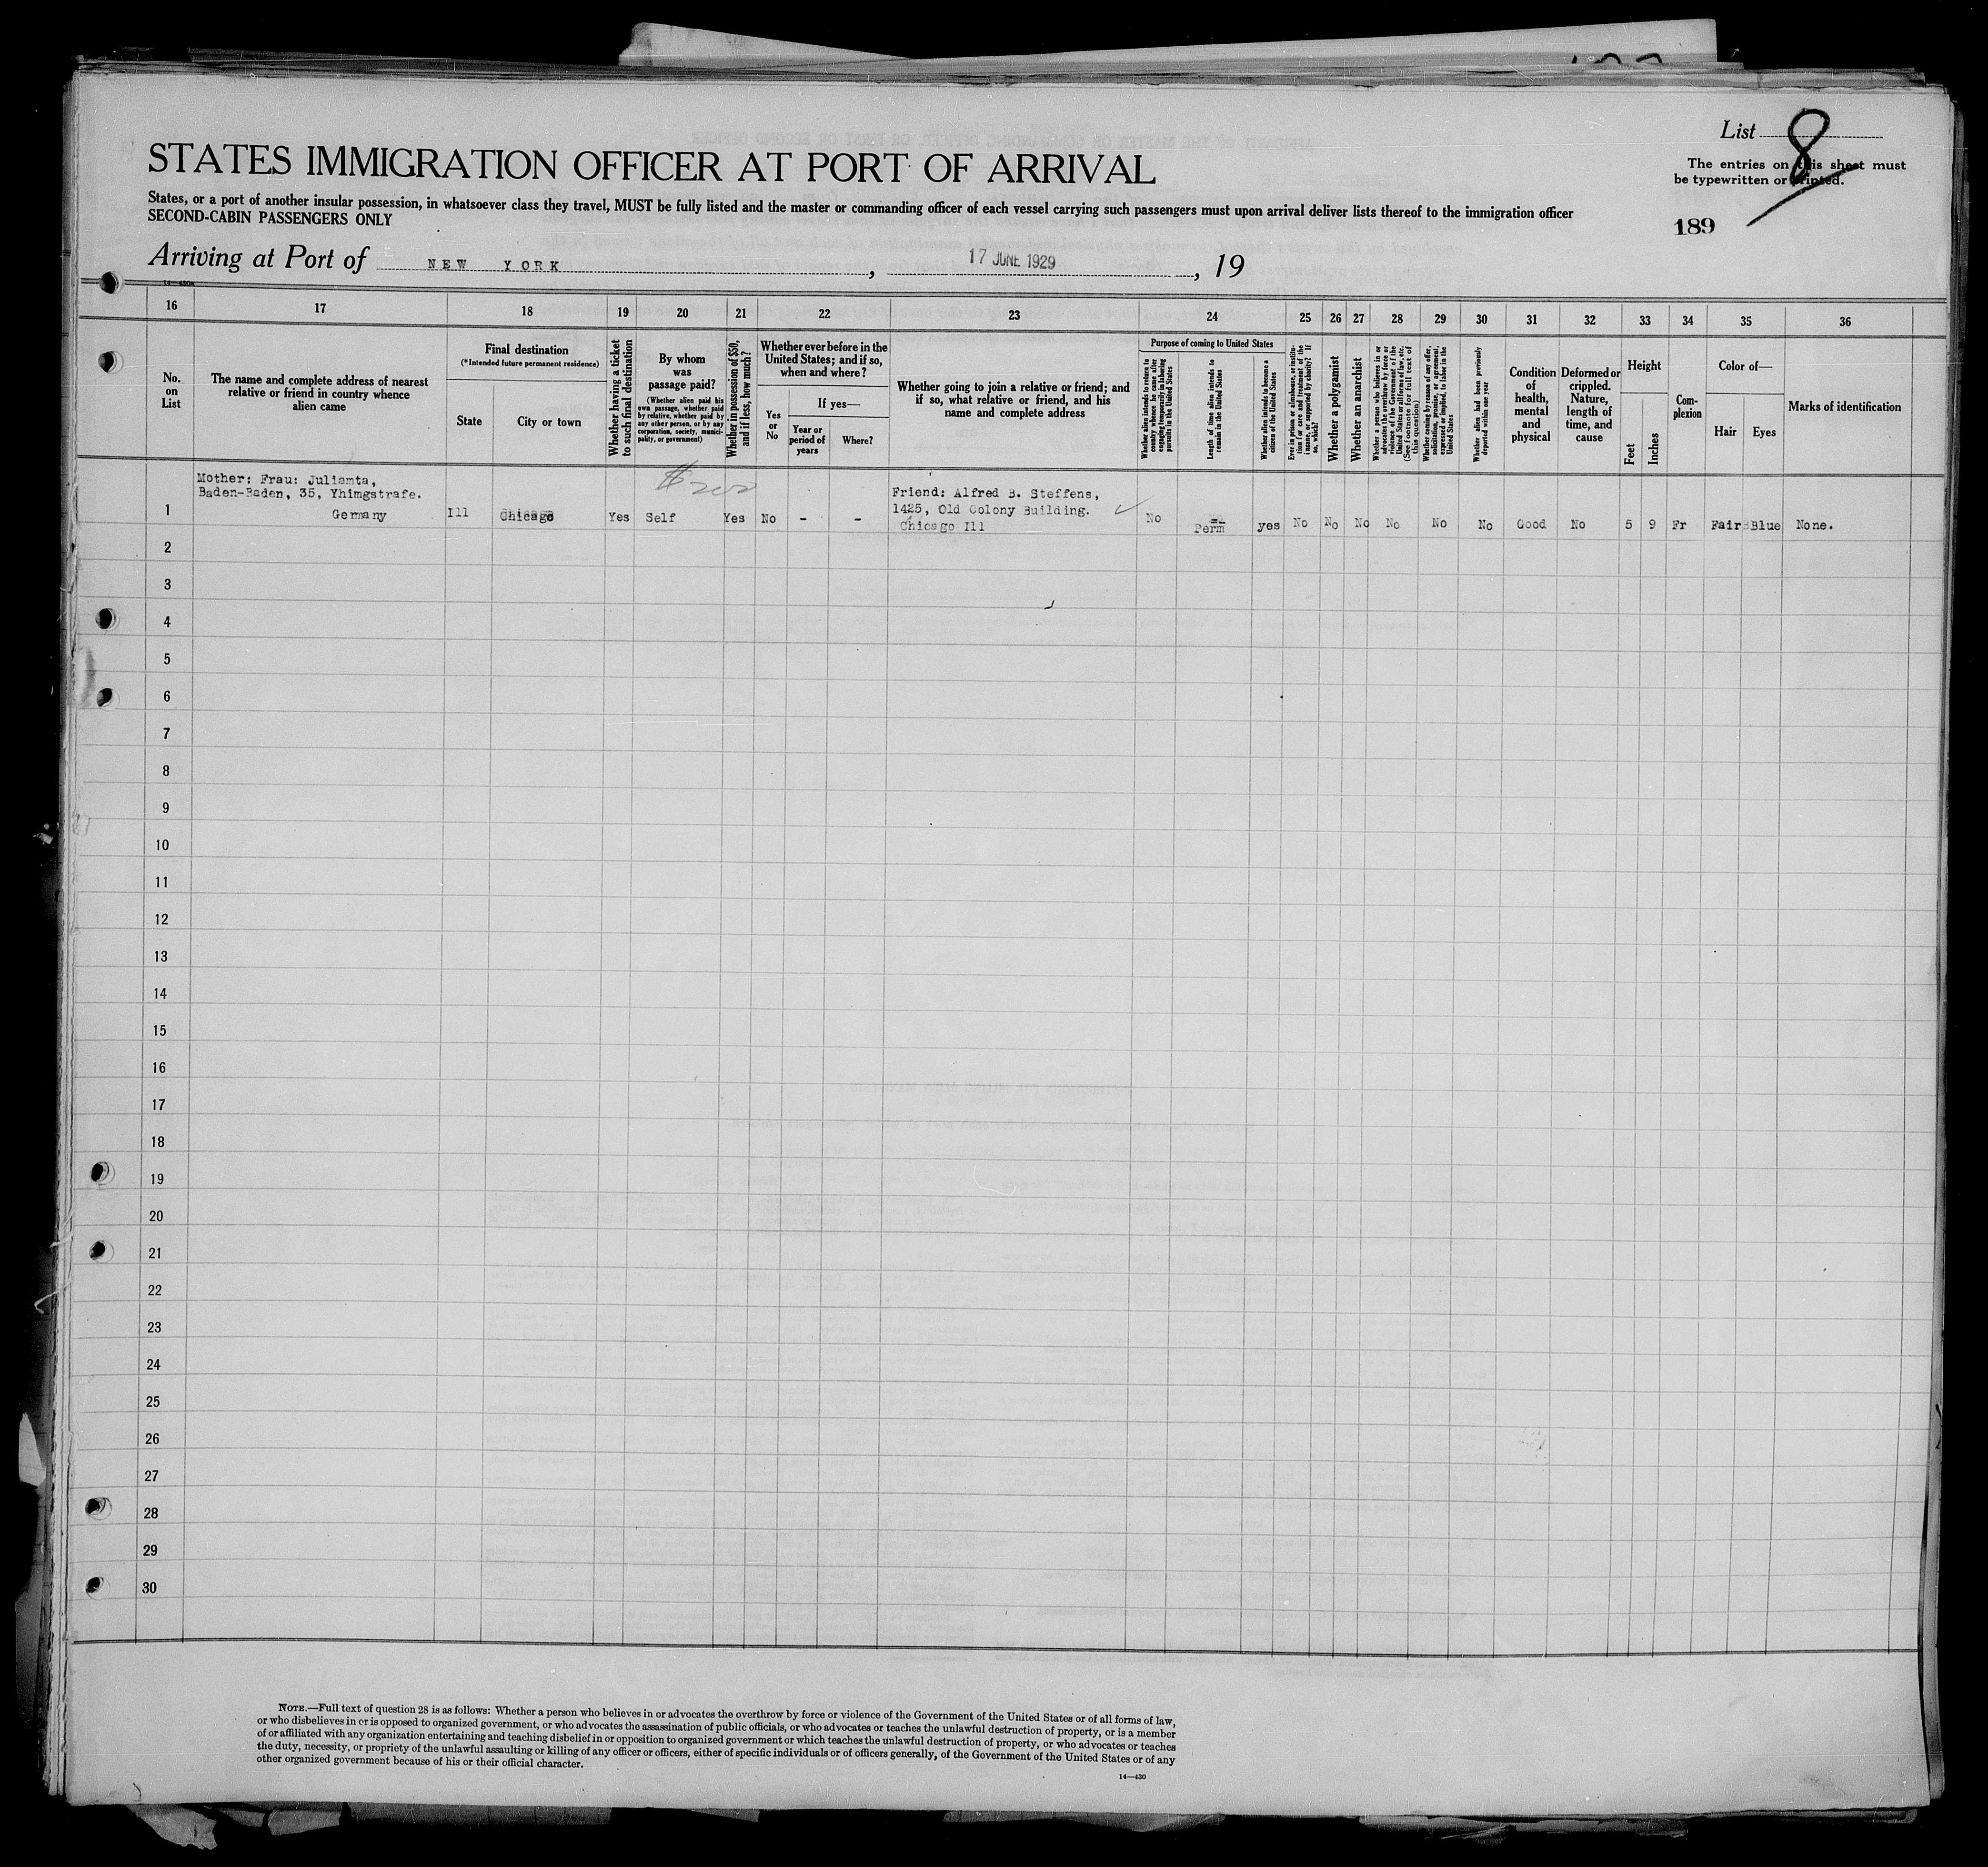 List 8
The entries on this sheet must
be typewritten or printed.
189
STATES IMMIGRATION OFFICER AT PORT OF ARRIVAL
States, or a port of another insular possession, in whatsoever class they travel, MUST be fully listed and the master or commanding officer of each vessel carrying such passengers must upon arrival deliver lists thereof to the immigration officer
SECOND-CABIN PASSENGERS ONLY
Arriving at Port of NEW YORK, 17 JUNE 1929, 19
14—430a
16 17 18 19 20 21 22 23 24 25 26 27 28 29 30 31 32 33 34 35 36
No.
on
List
The name and complete address of nearest
relative or friend in country whence
alien came
Final destination
(*Intended future permanent residence)
State
City or town
Whether having a ticket
to such final destination
By whom
was
passage paid?
(Whether alien paid his
own passage, whether paid
by relative, whether paid by
any other person, or by any
corporation, society, munici-
pality, or government)
Whether in possession of $50,
and if less, how much?
Whether ever before in the
United States; and if so,
when and where?
Yes
or
No
If yes—
Year or
period of
years
Where?
Whether going to join a relative or friend; and
if so, what relative or friend, and his
name and complete address
Purpose of coming to United States
Whether alien intends to return to
country whence he came after
engaging temporarily in laboring
pursuits in the United States
Length of time alien intends to
remain in the United States
Whether alien intends to become a
citizen of the United States
Ever in prison or almshouse, or institu-
tion for care and treatment of the
insane, or supported by charity? If
so, which?
Whether a polygamist
Whether an anarchist
Whether a person who believes in or
advocates the overthrow by force or
violence of the Government of the
United States or all forms of law, etc.
(See footnote for full text of
this question)
Whether coming by reason of any offer,
solicitation, promise, or agreement,
expressed or implied, to labor in the
United States
Whether alien had been previously
deported within one year
Condition
of
health,
mental
and
physical
Deformed or
crippled.
Nature,
length of
time, and
cause
Height
Feet
Inches
Com-
plexion
Color of—
Hair
Eyes
Marks of identification
$200
Mother: Frau: Juliamta,
Baden-Baden, 35, Yhimgstrafe.
Germany
Friend: Alfred B. Steffens,
1425, Old Colony Building.
Chicago Ill
1 Ill Chicago Yes Self Yes No - - No Perm yes No No No No No No Good No 5 9 Fr Fair Blue None.
2
3
4
5
6
7
8
9
10
11
12
13
14
15
16
17
18
19
20
21
22
23
24
25
26
27
28
29
30
NOTE.—Full text of question 28 is as follows: Whether a person who believes in or advocates the overthrow by force or violence of the Government of the United States or of all forms of law,
or who disbelieves in or is opposed to organized government, or who advocates the assassination of public officials, or who advocates or teaches the unlawful destruction of property, or is a member
of or affiliated with any organization entertaining and teaching disbelief in or opposition to organized government or which teaches the unlawful destruction of property, or who advocates or teaches
the duty, necessity, or propriety of the unlawful assaulting or killing of any officer or officers, either of specific individuals or of officers generally, of the Government of the United States or of any
other organized government because of his or their official character.
14—430